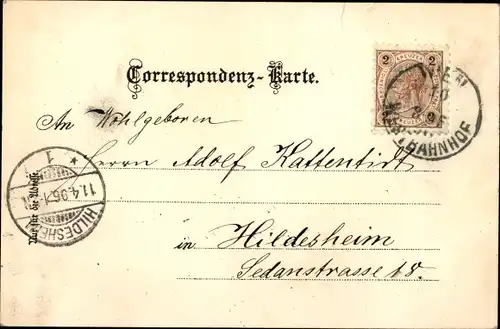 Correspondenz-Karte.
An Wohlgeboren
Herrn Adolf Kattentidt
in Hildesheim
Sedanstrasse 18.
Nur für die Adresse
2 KREUZER 2
WIEN
BAHNHOF
11.4.96.
HILDESHEIM
* 1